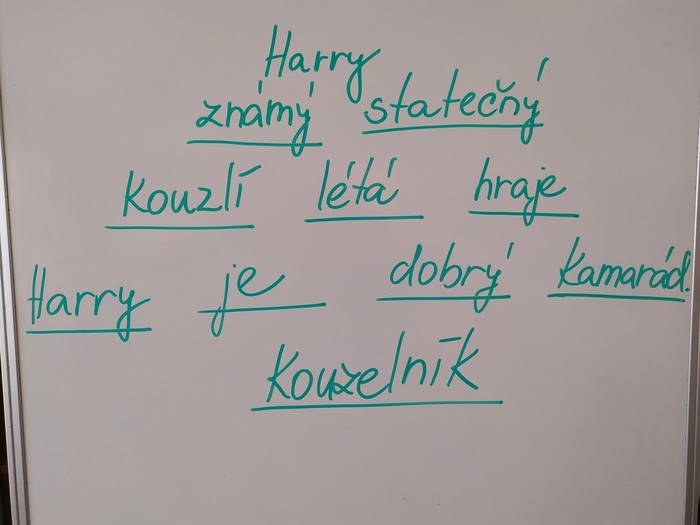 Harry
známý statečný
kouzlí létá hraje
Harry je dobrý kamarád.
kouzelník